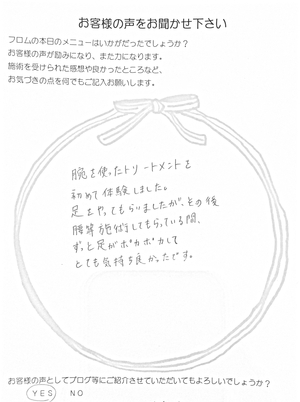 お客様の声をお聞かせ下さい
フロムの本日のメニューはいかがだったでしょうか?
お客様の声が励みになり、また力になります。
施術を受けられた感想や良かったところなど、
お気づきの点を何でもご記入お願いします。
腕を使ったトリートメントを
初めて体験しました。
足をやってもらいましたが、その後
施術してもらっている間、
ずっと足がポカポカして
とても気持ち良かったです。
お客様の声としてブログ等にご紹介させていただいてもよろしいでしょうか?
YES NO